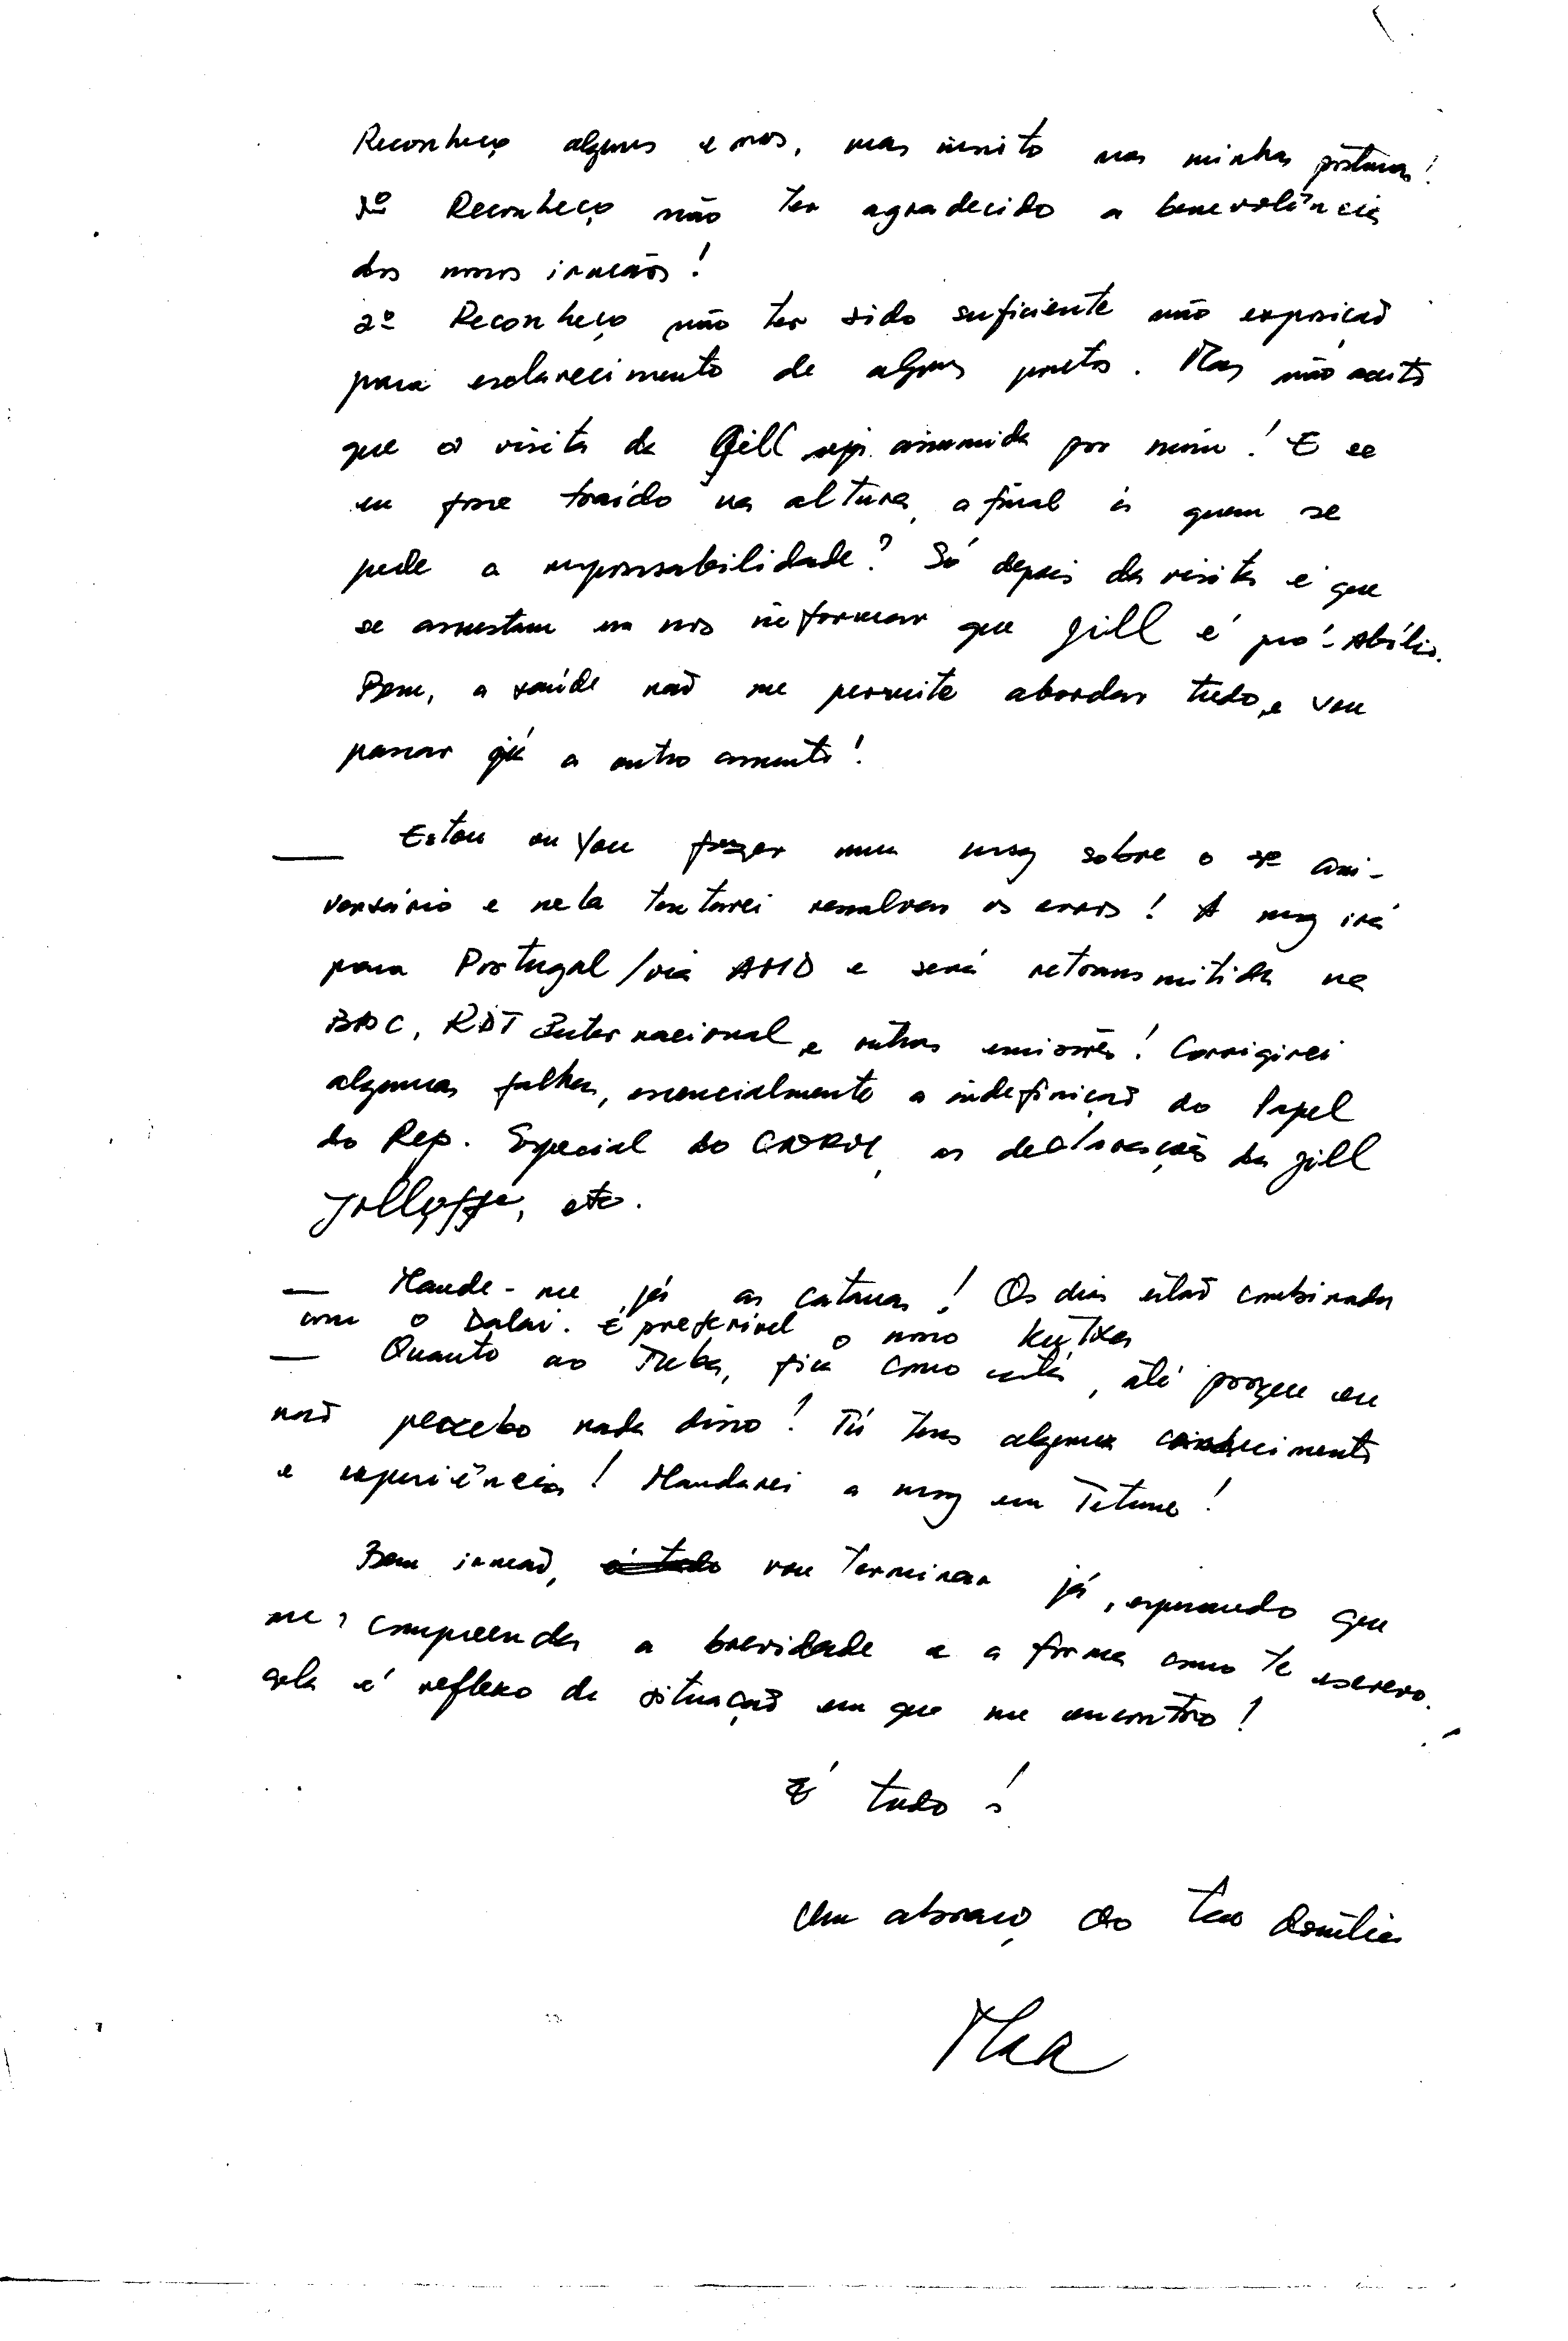 Reconheço alguns erros, mas insisto nas minhas posturas!
1º Reconheço não ter agradecido a benevolência
dos nossos irmãos!
2º Reconheço não ter sido suficiente não exposição
para esclarecimento de alguns pontos. Mas não aceito
que a visita da Jill seja assumida por mim! E se
eu fosse traído na altura, afinal à quem se
pede a responsabilidade? Só depois da visita é que
se assustam em nos informar que Jill é pró-Abílio.
Bem, a saúde não me permite abordar tudo, e vou
passar já a outro assunto!
— Estou ou vou fazer uma msg sobre o ani-
versário e nela tentarei resolver os erros! A msg irá
para Portugal/via e será retransmitida na
RDT Internacional e outras emissões! Corrigirei
algumas falhas, essencialmente a indefinição do Papel
do Rep. Especial do CNRM, as declarações da Jill
Jollyffe, etc.
— Mande-me já as catanas! Os dias estão combinados
com o Dalai. É preferível o novo
— Quanto ao fica como está, até porque eu
não percebo nada disso! Tú tens algum conhecimento
e experiência! Mandarei a msg em Tetum!
Bem irmão, é tudo vou terminar já, esperando que
me compreendas a brevidade e a forma como te escrevo.
ela é reflexo da situação em que me encontro!
É tudo!
Um abraço ao teu